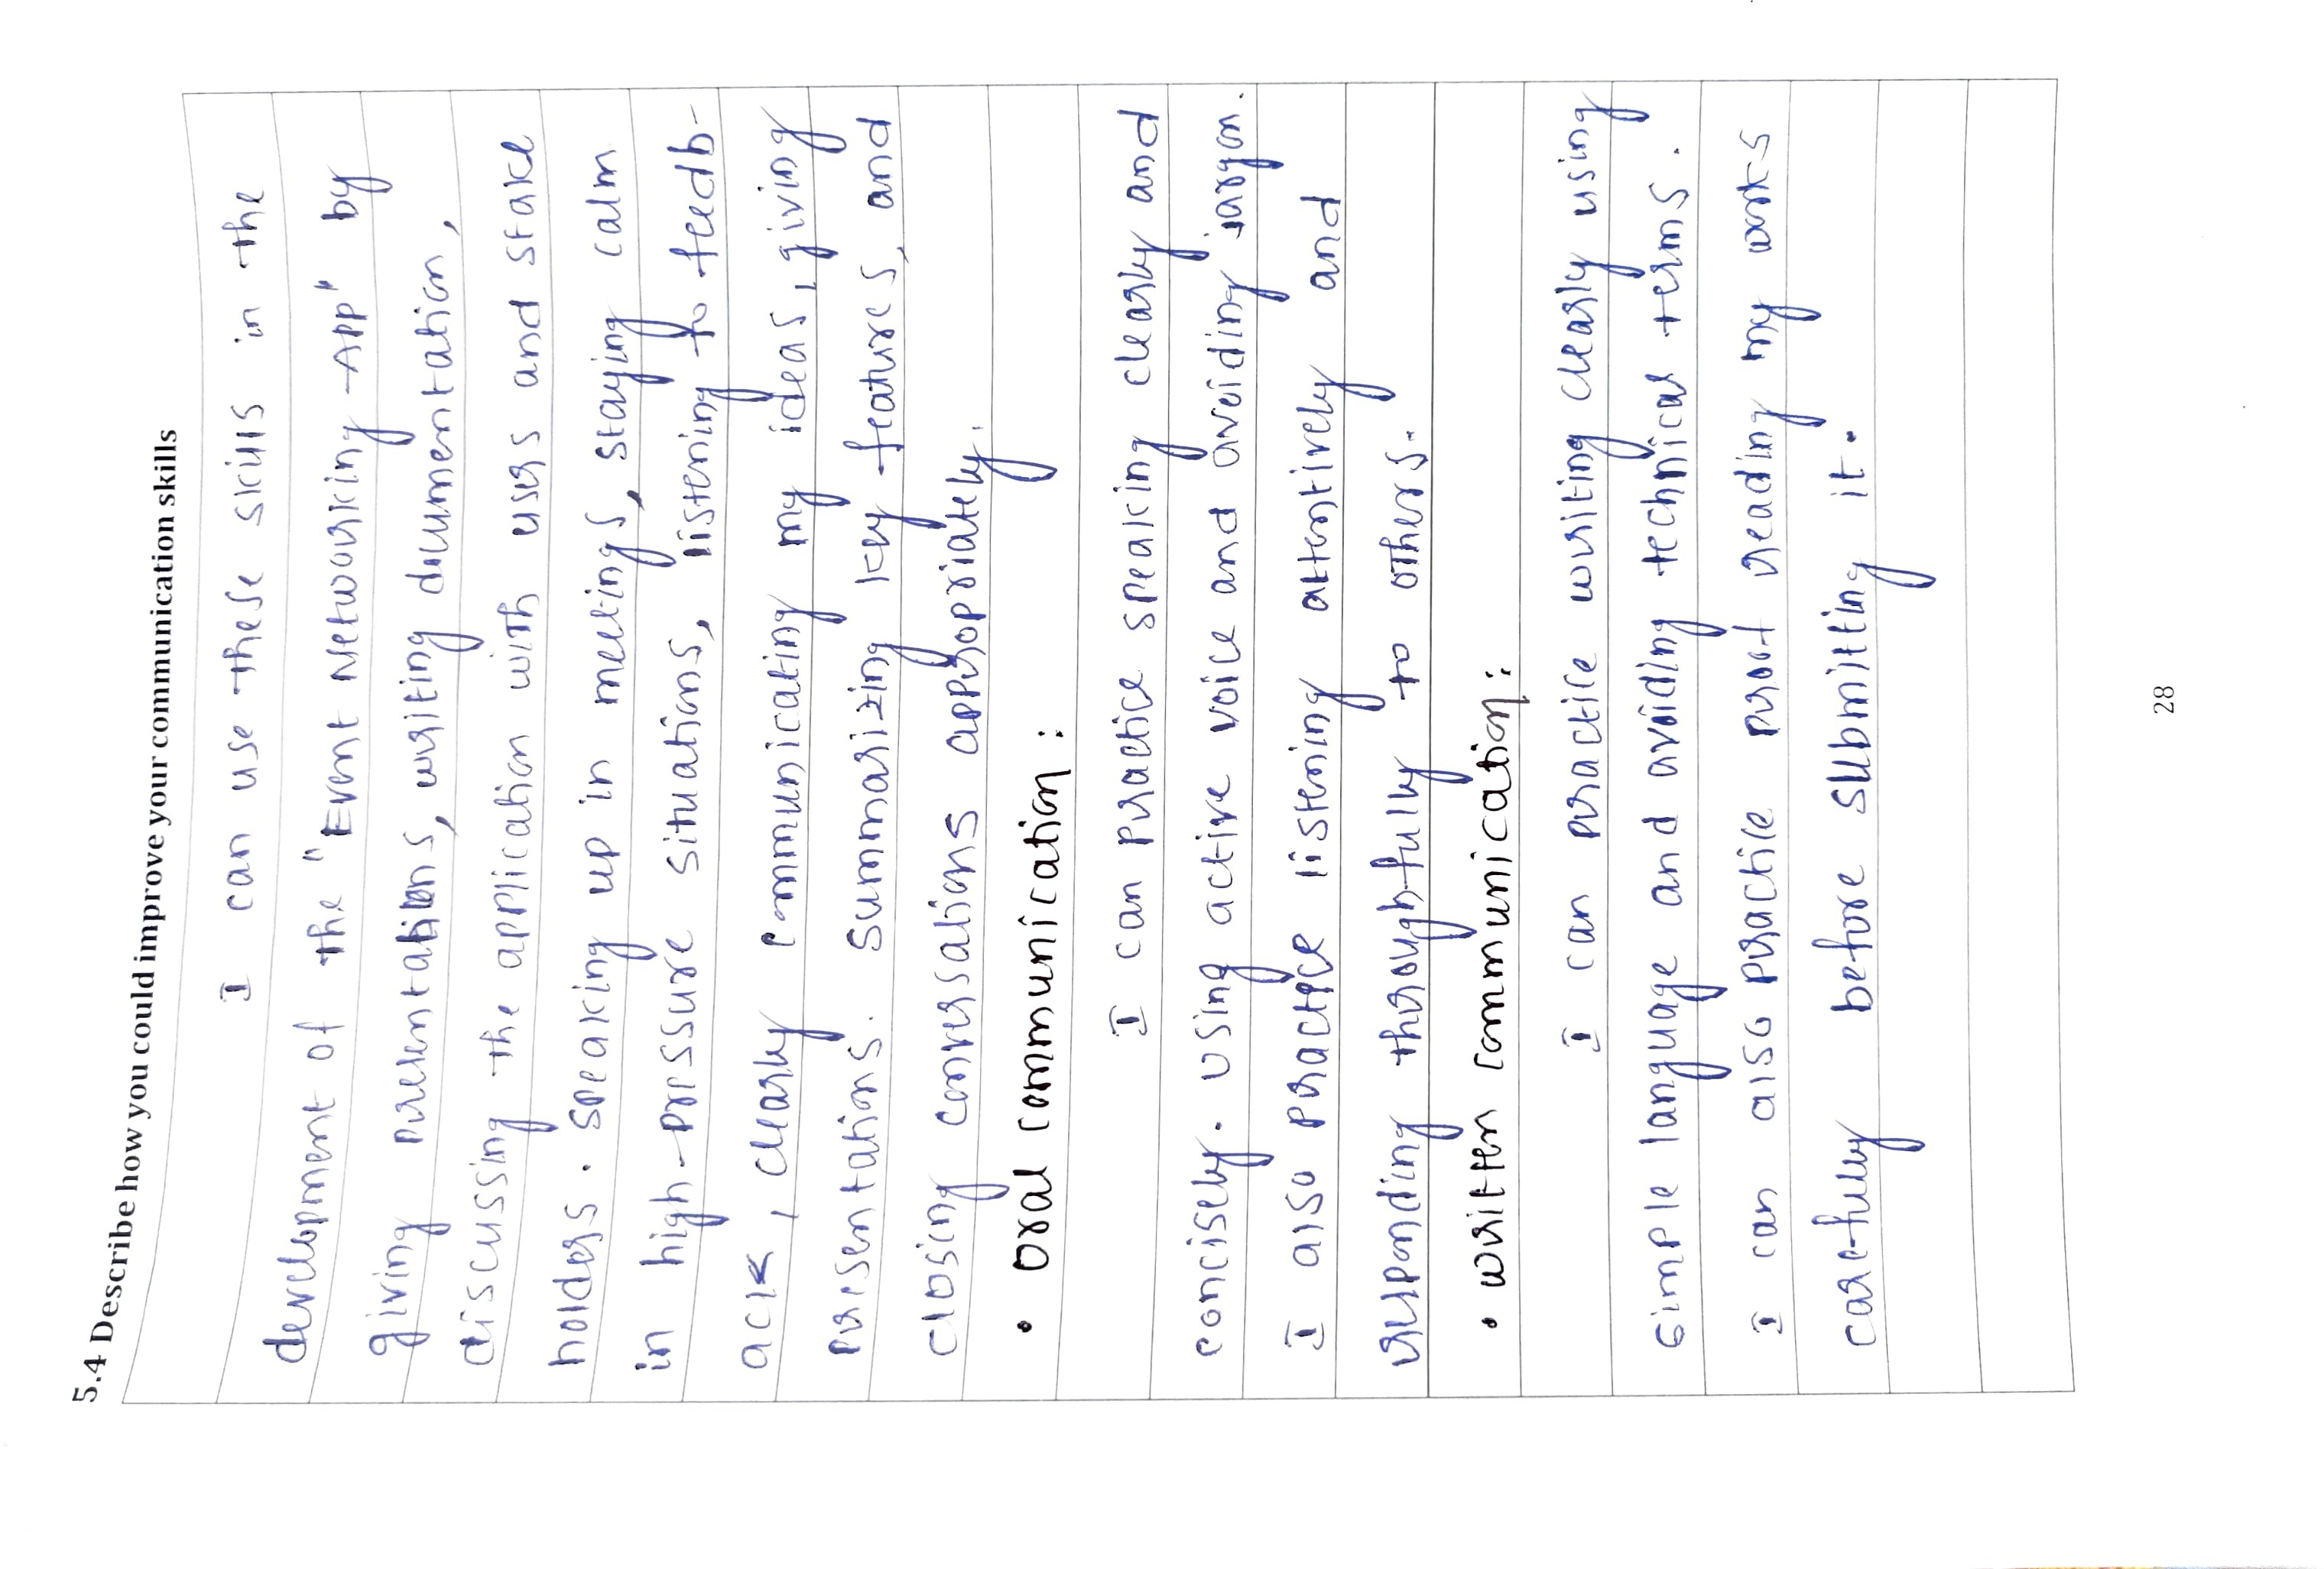 5.4 Describe how you could improve your communication skills
I can use these skills in the
development of the "Event Networking App" by
giving presentations, writing documentation,
discussing the application with users and stake
holders. speaking up in meetings, staying calm
in high-pressure situations, listening to feedb-
ack, clearly communicating my ideas, giving
presentations. summarizing key features, and
closing conversations appropriately.
• Oral communication:
I can practice speaking clearly and
concisely. using active voice and avoiding jargon.
I also practice listening attentively and
responding thoroughtfully to others.
• written communication:
I can practice writing clearly using
simple language and avoiding technical terms.
I can also practice proof reading my works
carefully before submitting it.
28